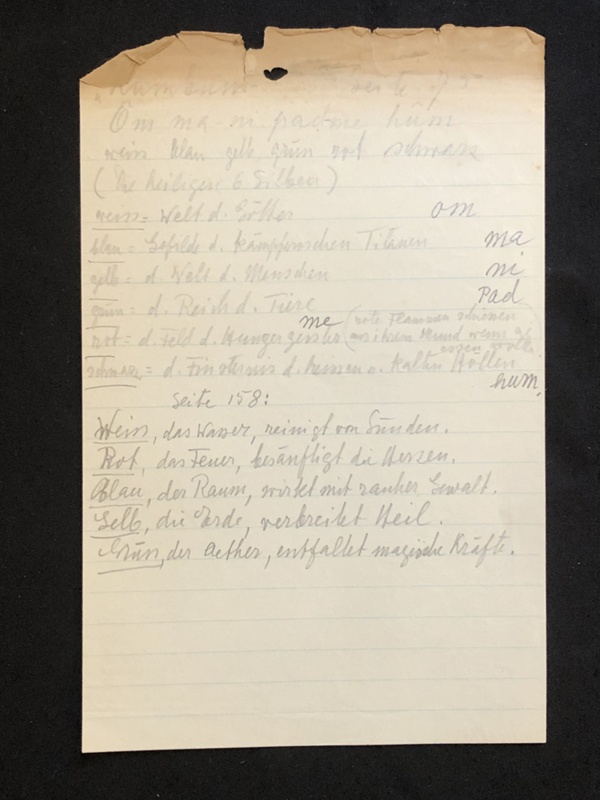 "Kumbum" Seite 75
Ôm ma-ni pad-me hûm
weiss blau gelb grün rot schwarz
(Die heiligen 6 Silben)
weiss = Welt d. Götter om
blau = Gefilde d. kämpferischen Titanen ma
gelb = d. Welt d. Menschen ni
grün = d. Reich d. Tiere Pad
rot = d. Feld d. Hungergeister me (rote Flammen schiessen
aus ihrem Mund wenn sie
essen wollen)
schwarz = d. Finsternis d. heissen u. kalten Höllen
hum.
Seite 158:
Weiss, das Wasser, reinigt von Sünden.
Rot, das Feuer, besänftigt die Herzen.
Blau, der Raum, wirkt mit rauher Gewalt.
Gelb, die Erde, verbreitet Heil.
Grün, der Aether, entfaltet magische Kräfte.